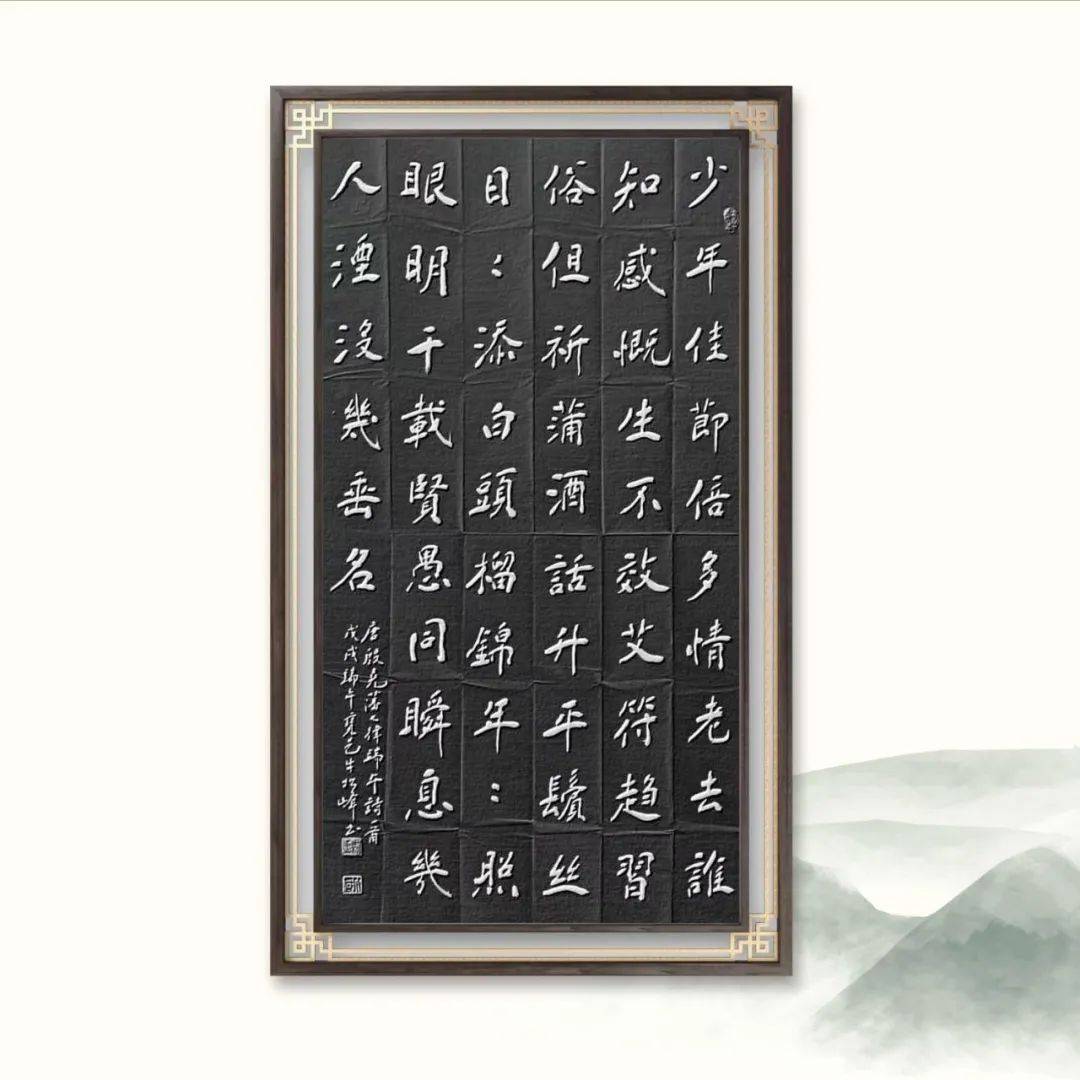 少年佳節倍多情老去誰
知感慨生不效艾符趋習
俗但祈蒲酒話升平鬢絲
日:添白頭榴錦年:照
眼明千載賢愚同瞬息幾
人湮没幾垂名
唐殷尧藩七律端午詩一首
戊戌端午襄邑牛松峰书